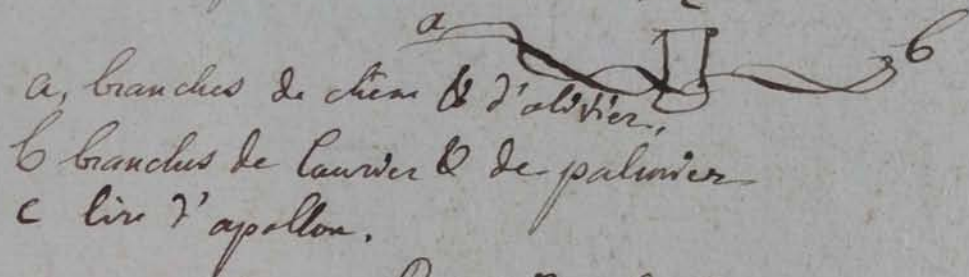 a b
a, branches de chêne & d'olivier,
b branches de laurier & de palmier
c lire d'apollon.